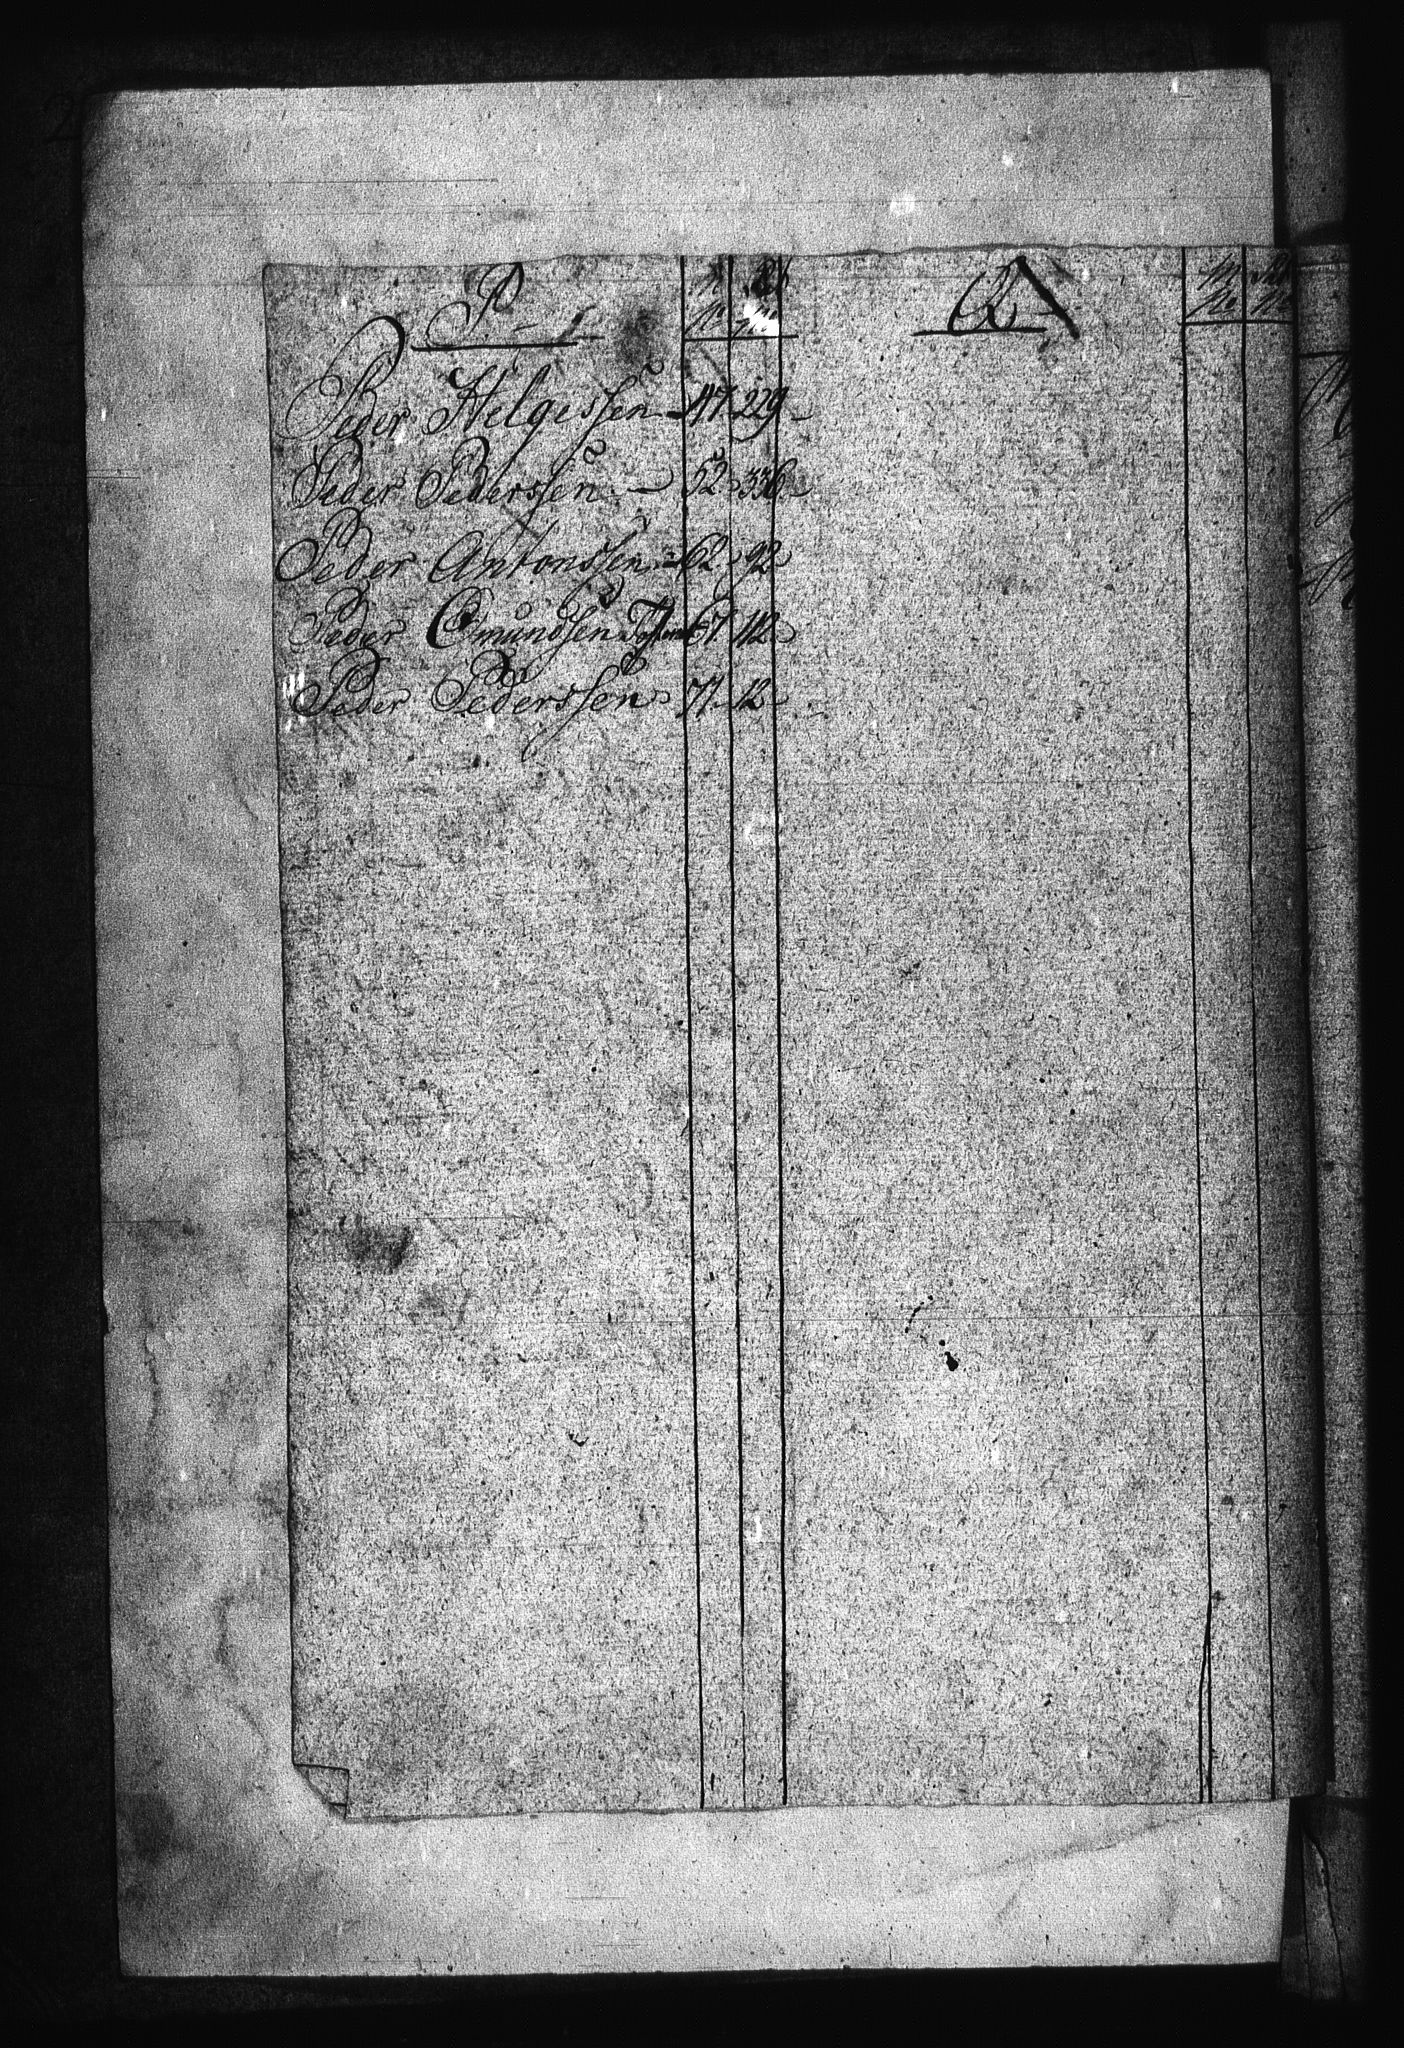 P.
No
No
Peder Helgessen 47. 229
Peder Pederssen 52 336
Peder Antonssen 62 92
Peder Omundsen 67 112
Peder Pederssen 71 12
Q
No No